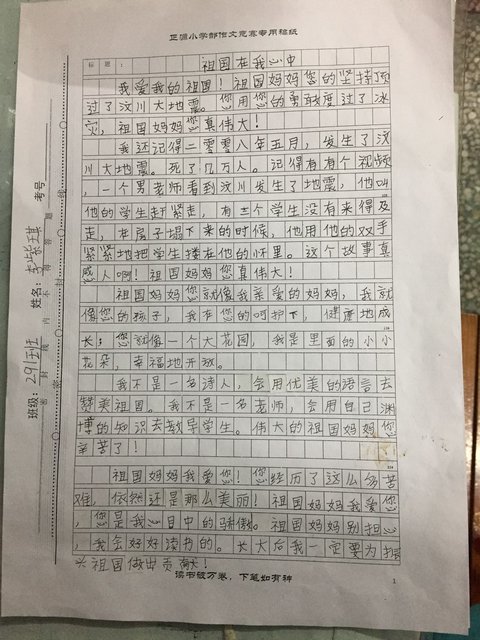 正源小学部作文竞赛专用稿纸
标题： 祖国在我心中
我爱我的祖国！祖国妈妈您的坚持顶
过了汶川大地震。您用您的勇敢度过了冰
灾，祖国妈妈您真伟大！
我还记得二零零八年五月，发生了汶
川大地震。死了几万人。记得有有个视频
，一个男老师看到汶川发生了地震，他叫
他的学生赶紧走，有三个学生没有来得及
走，在房子塌下来的时候，他用他的双手
紧紧地把学生搂在他的怀里。这个故事真
感人啊！祖国妈妈您真伟大！
祖国妈妈您就像我亲爱的妈妈，我就
像您的孩子，我在您的呵护下，健康地成
长；您就像一个大花园，我是里面的小小
花朵，幸福地开放。
我不是一名诗人，会用优美的语言去
赞美祖国。我不是一名老师，会用自己渊
博的知识去教导学生。伟大的祖国妈妈您
辛苦了！
祖国妈妈我爱您！您经历了这么多苦
难，依然还是那么美丽！祖国妈妈我爱您
，您是我心目中的骄傲。祖国妈妈别担心
，我会好好读书的。长大后我一定要为
祖国做出贡献！
读书破万卷，下笔如有神
1
班级：291班 姓名：李紫琪 考号
密 封 线 内 不 得 答 题